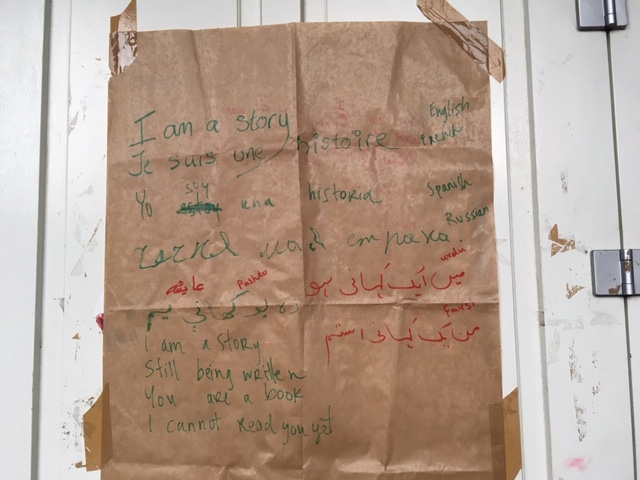 I am a story English
Je suis une histoire French
Yo soy una historia Spanish
Russian
میں ایک کہانی ہو urdu
عایفه Pashto
زه یو کهاني یم
من یک کہانی استم farsi
I am a story
Still being written
You are a book
I cannot read you yet